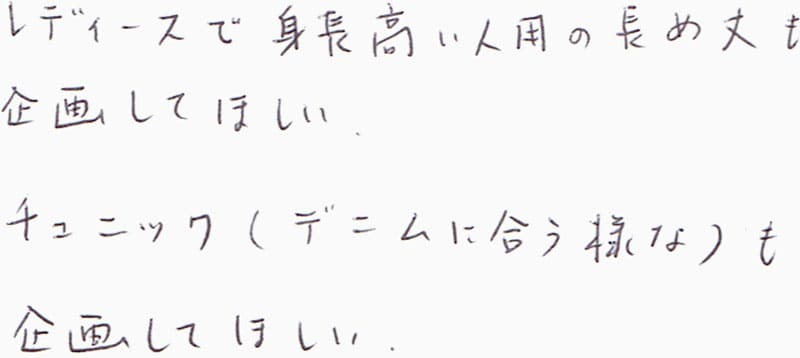 レディースで身長高い人用の長め丈も
企画してほしい.
チュニック(デニムに合う様な)も
企画してほしい.